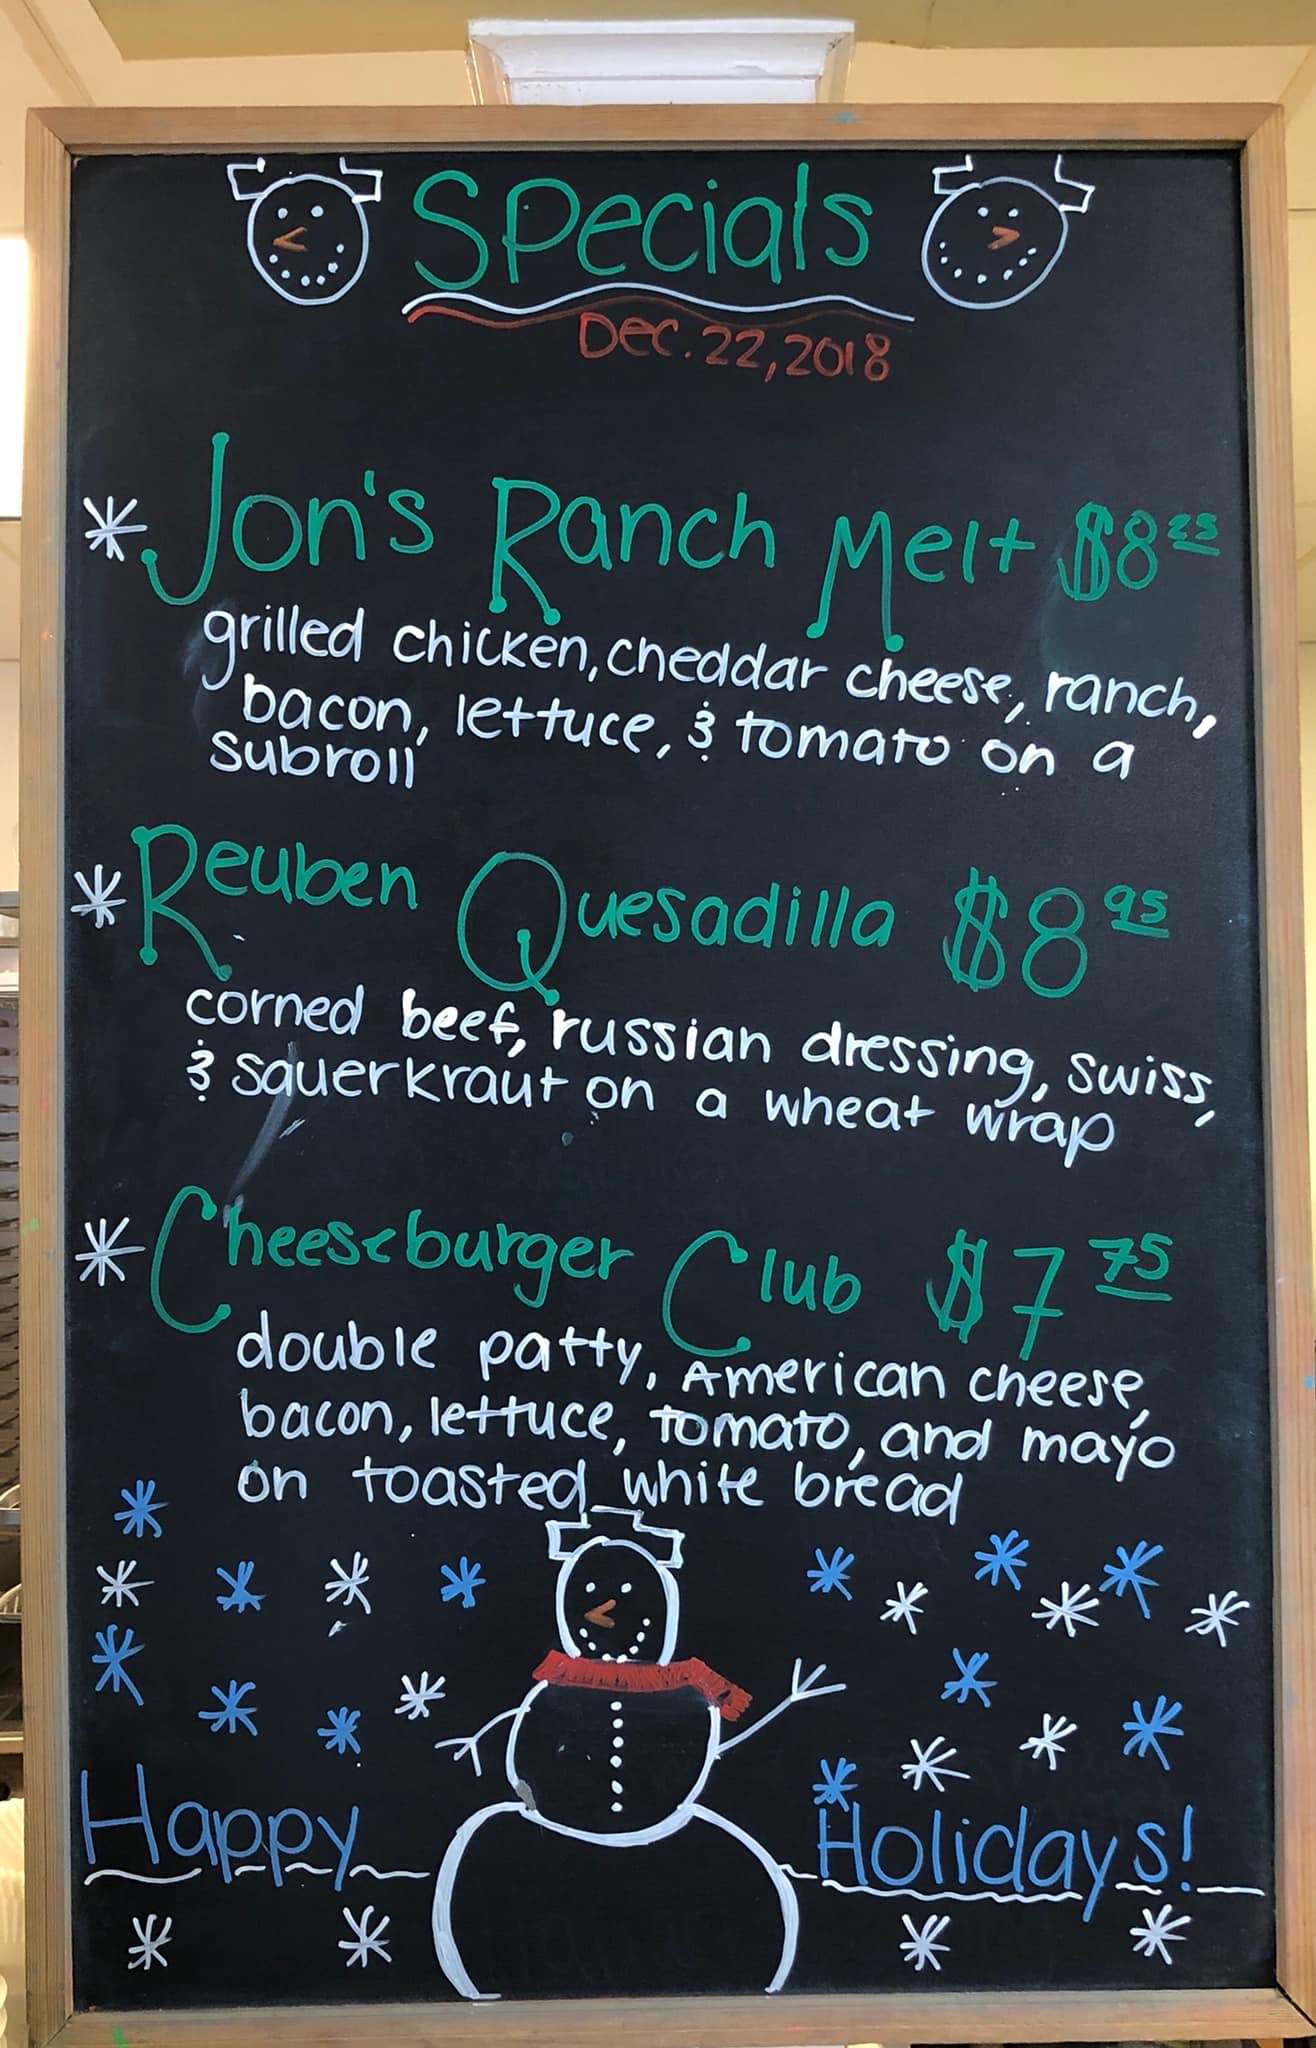 Specials
Dec. 22, 2018
* Jon's Ranch Melt $8 25
grilled chicken, cheddar cheese, ranch,
bacon, lettuce, & tomato on a
subroll
* Reuben Quesadilla $8 95
corned beef, russian dressing, swiss,
& sauerkraut on a wheat wrap
* Cheeseburger Club $7 75
double patty, American cheese,
bacon, lettuce, tomato, and mayo
on toasted white bread
Happy Holidays!